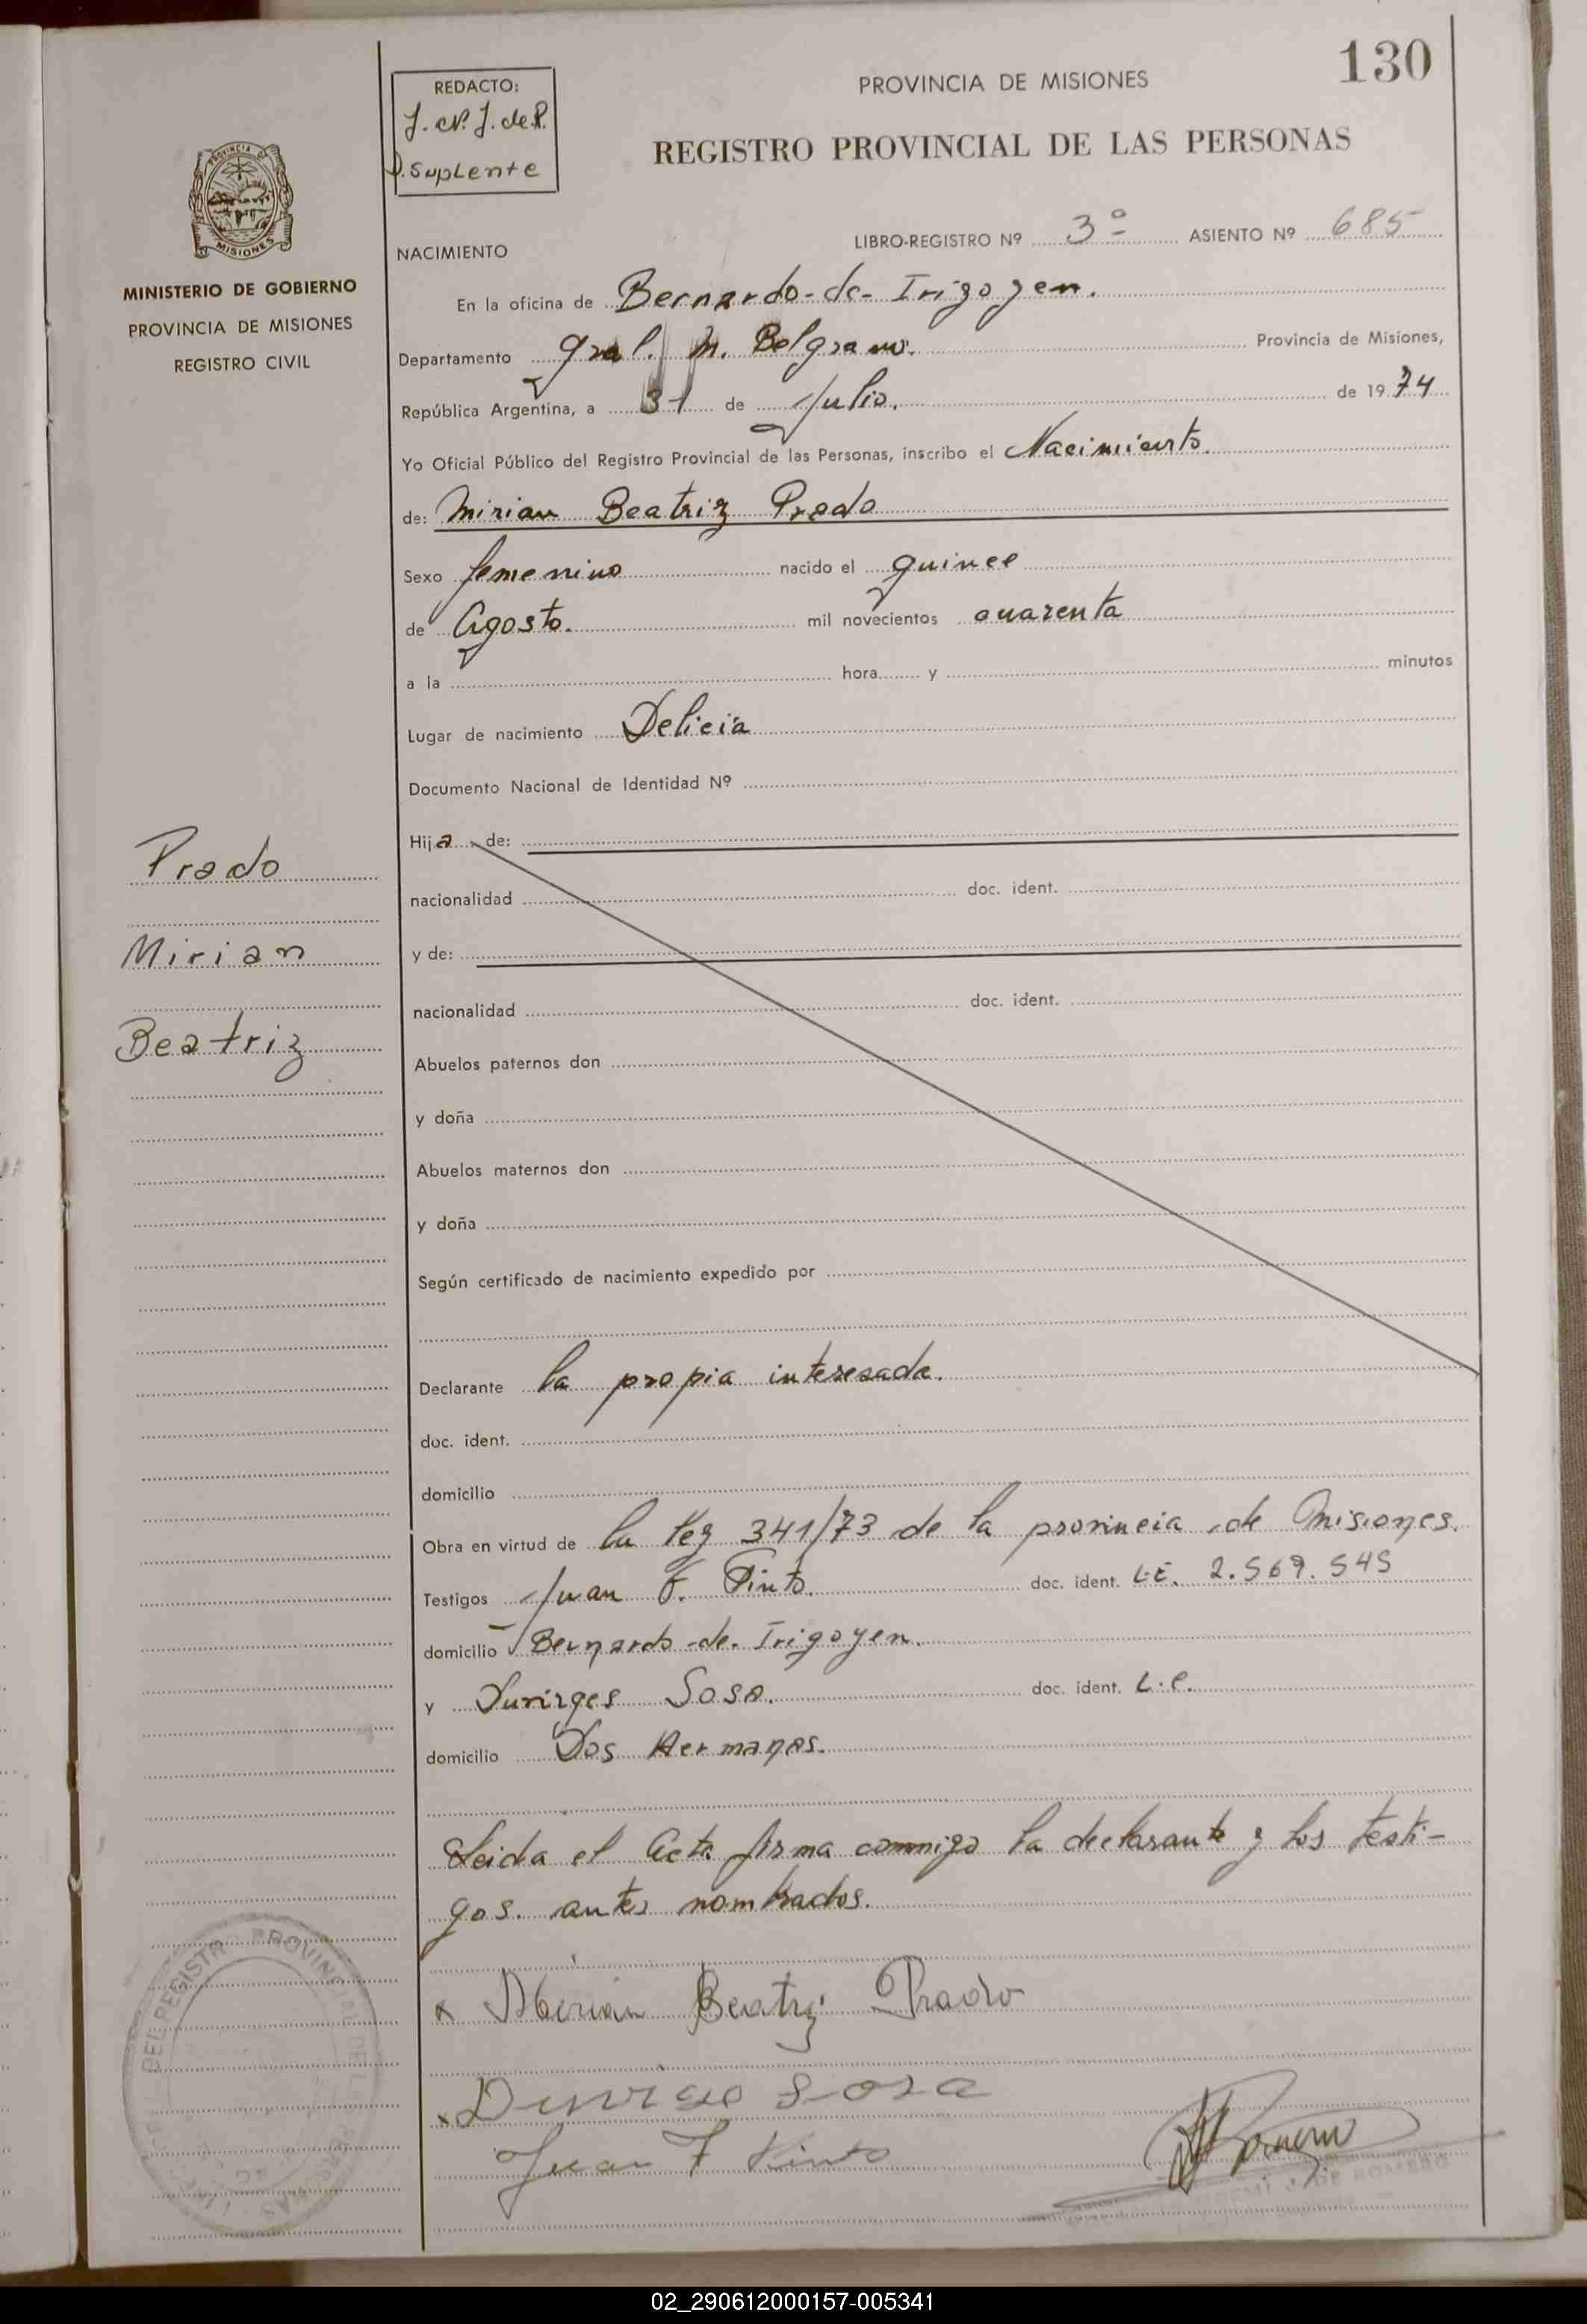 130
REDACTO:
J. N. J. de R.
D. Suplente
PROVINCIA DE MISIONES
REGISTRO PROVINCIAL DE LAS PERSONAS
PROVINCIA DE
MISIONES
MINISTERIO DE GOBIERNO
PROVINCIA DE MISIONES
REGISTRO CIVIL
LIBRO-REGISTRO Nº 3º ASIENTO Nº 685
NACIMIENTO
En la oficina de Bernardo-de-Irigoyen.
Departamento Gral. M. Belgrano. Provincia de Misiones,
República Argentina, a 31 de Julio. de 1974
Yo Oficial Público del Registro Provincial de las Personas, inscribo el Nacimiento.
de: Mirian Beatriz Prado
Sexo femenino nacido el quince
de Agosto. mil novecientos cuarenta
a la hora y minutos
Lugar de nacimiento Delicia
Documento Nacional de Identidad Nº
Hija de:
nacionalidad doc. ident.
y de:
nacionalidad doc. ident.
Abuelos paternos don
y doña
Abuelos maternos don
y doña
Según certificado de nacimiento expedido por
Declarante la propia interesada.
doc. ident.
domicilio
Obra en virtud de la ley 341/73 de la provincia de Misiones.
Testigos Juan F. Pinto. doc. ident. L.E. 2.569.545
domicilio Bernardo-de-Irigoyen.
y Sosa. doc. ident. L.E.
domicilio Dos Hermanas.
Leida el Acta firma conmigo la declarante y los testi-
gos. antes nombrados.
x Mirian Beatriz Prado
x Sosa
Juan F Pinto
Prado
Mirian
Beatriz
DEL REGISTRO PROVINCIAL DE LAS PERSONAS
ROMERO
02_290612000157-005341